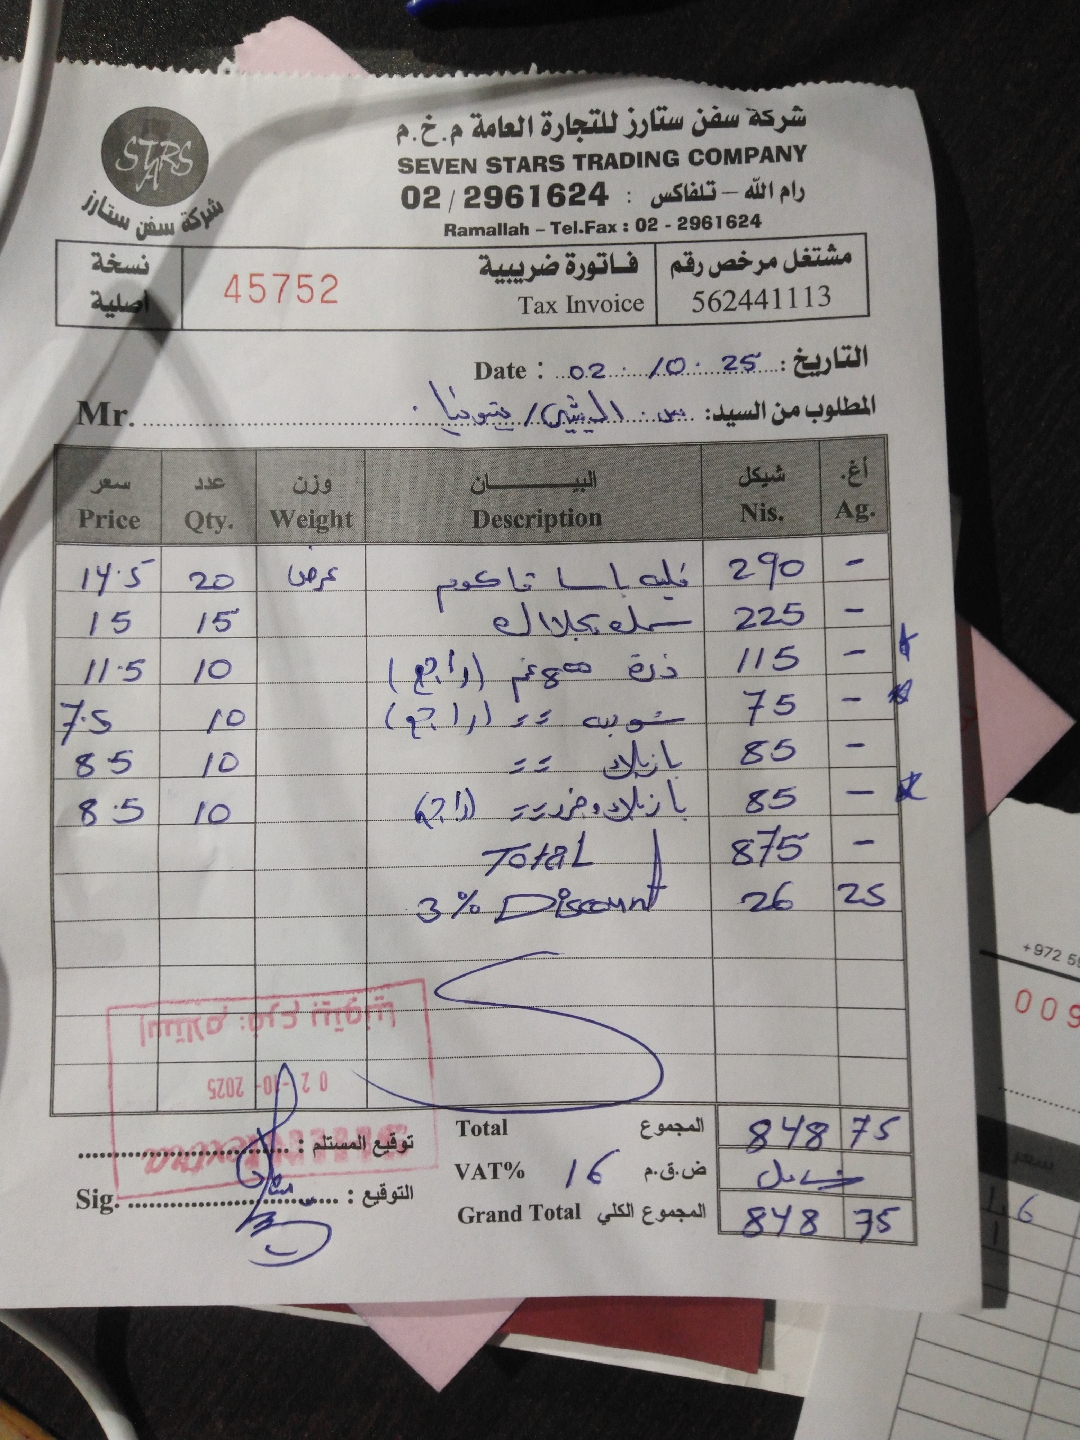 شركة سفن ستارز للتجارة العامة م.خ.م
SEVEN STARS TRADING COMPANY
رام الله – تلفاكس : 02 / 2961624
Ramallah – Tel.Fax : 02 - 2961624
STARS
شركة سفن ستارز
نسخة أصلية
45752
فاتورة ضريبية
Tax Invoice
مشتغل مرخص رقم
562441113
التاريخ : Date : 02 . 10 . 25
المطلوب من السيد: / بيتونيا Mr.
سعر عدد وزن البيان شيكل أغ.
Price Qty. Weight Description Nis. Ag.
14.5 20 عرض فليه باسا 290 -
15 15 سمك 225 -
11.5 10 ذرة 800 غم (راجع) 115 -
7.5 10 = = (راجع) 75 -
8.5 10 بازيلا = = 85 -
8.5 10 بازيلا وجزر = = (راجع) 85 -
Total 875 -
3% Discount 26 25
استلام: فرع بيتونيا
02-10-2025
Total المجموع 848 75
VAT% 16 ض.ق.م شامل
Grand Total المجموع الكلي 848 75
توقيع المستلم :
Sig. التوقيع :
+972 59
009
سعر